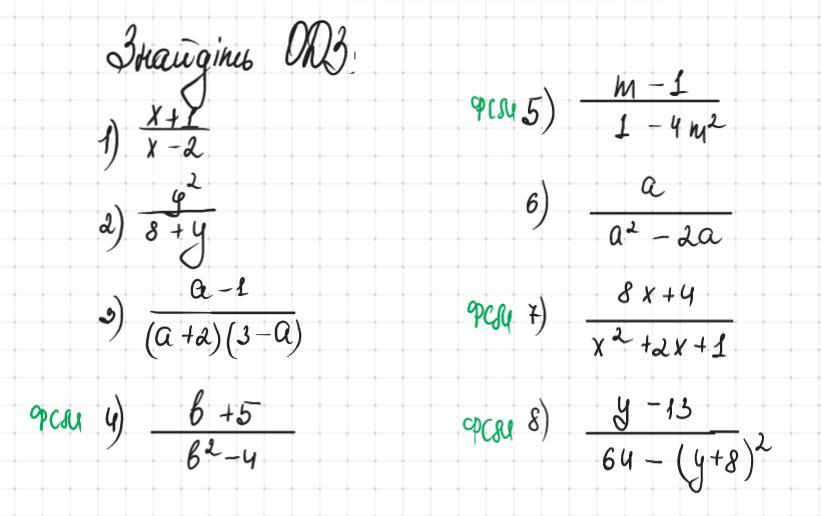 Знайдіть ОДЗ:
1) x+1 / x-2
2) y² / 8+y
3) a-1 / (a+2)(3-a)
ФСМ 4) b+5 / b²-4
ФСМ 5) m-1 / 1-4m²
6) a / a²-2a
ФСМ 7) 8x+4 / x²+2x+1
ФСМ 8) y-13 / 64-(y+8)²